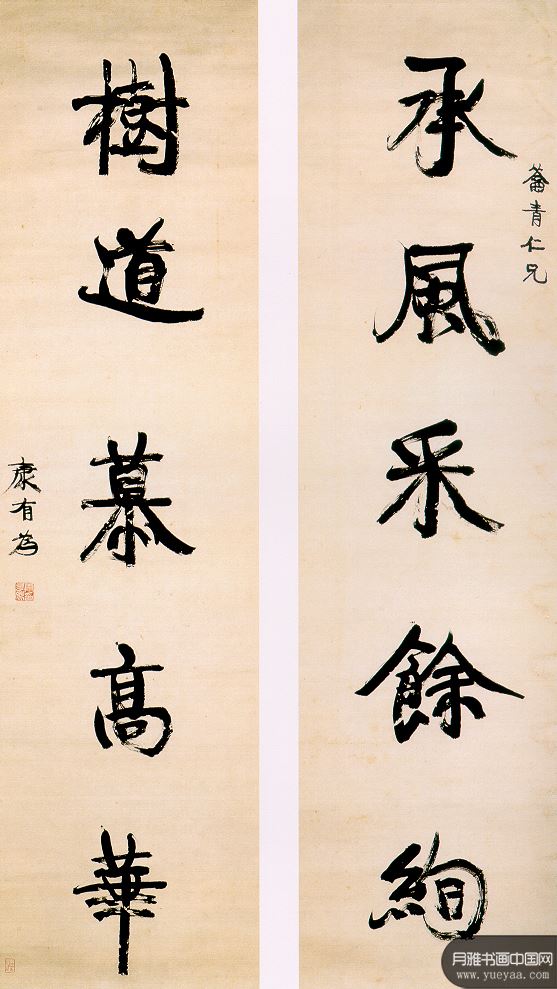 薈青仁兄
承風采餘絢
樹道慕高華
康有為
月雅书画中国网
www.yueyaa.com